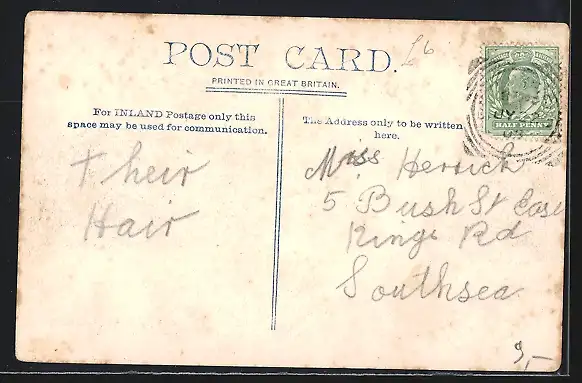 POST CARD.
£6
PRINTED IN GREAT BRITAIN.
For INLAND Postage only this
space may be used for communication.
The Address only to be written
here.
Their
Hair
Miss Herrick
5 Bush St East
Kings Rd
Southsea
HALF PENNY
9,-